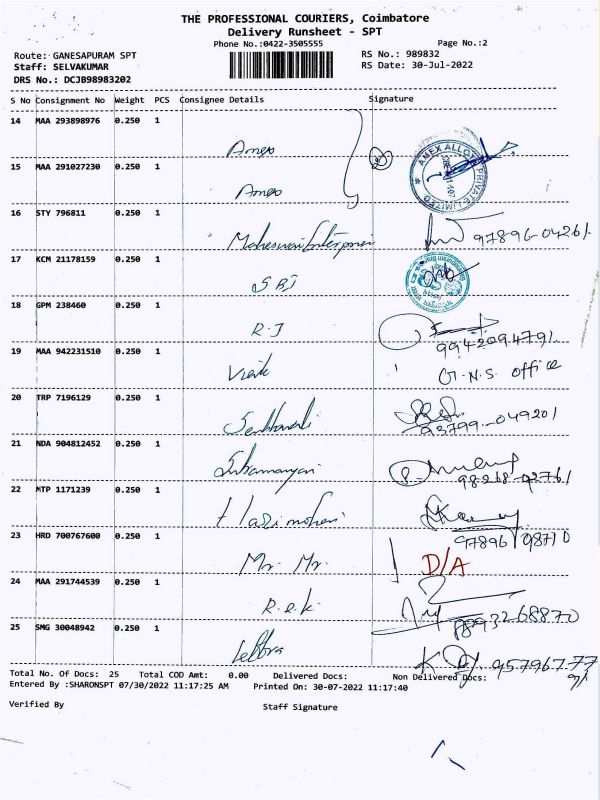 THE PROFESSIONAL COURIERS, Coimbatore
Delivery Runsheet - SPT
Phone No.:0422-3505555
Page No.:2
Route: GANESAPURAM SPT
RS No.: 989832
Staff: SELVAKUMAR
RS Date: 30-Jul-2022
DRS No.: DCJB98983202
S No Consignment No Weight PCS Consignee Details Signature
14 MAA 293898976 0.250 1
Amex
AMEX ALLOY PRIVATE LIMITED
15 MAA 291027230 0.250 1
Amex
16 STY 796811 0.250 1
Maheswari Enterprises 97896-04261
17 KCM 21178159 0.250 1
SBI
18 GPM 238460 0.250 1
R.J
9942094791
19 MAA 942231510 0.250 1
G.N.S. office
20 TRP 7196129 0.250 1
93799-049201
21 NDA 904812452 0.250 1
Subramanyan
98268-02761
22 MTP 1171239 0.250 1
Harimohan
97896 08710
23 HRD 700767600 0.250 1
Mr. Mr. D/A
24 MAA 291744539 0.250 1
R.e.k.
7893268870
25 SMG 30048942 0.250 1
95796777
91
Total No. Of Docs: 25 Total COD Amt: 0.00 Delivered Docs: Non Delivered Docs:
Entered By :SHARONSPT 07/30/2022 11:17:25 AM Printed On: 30-07-2022 11:17:40
Verified By Staff Signature